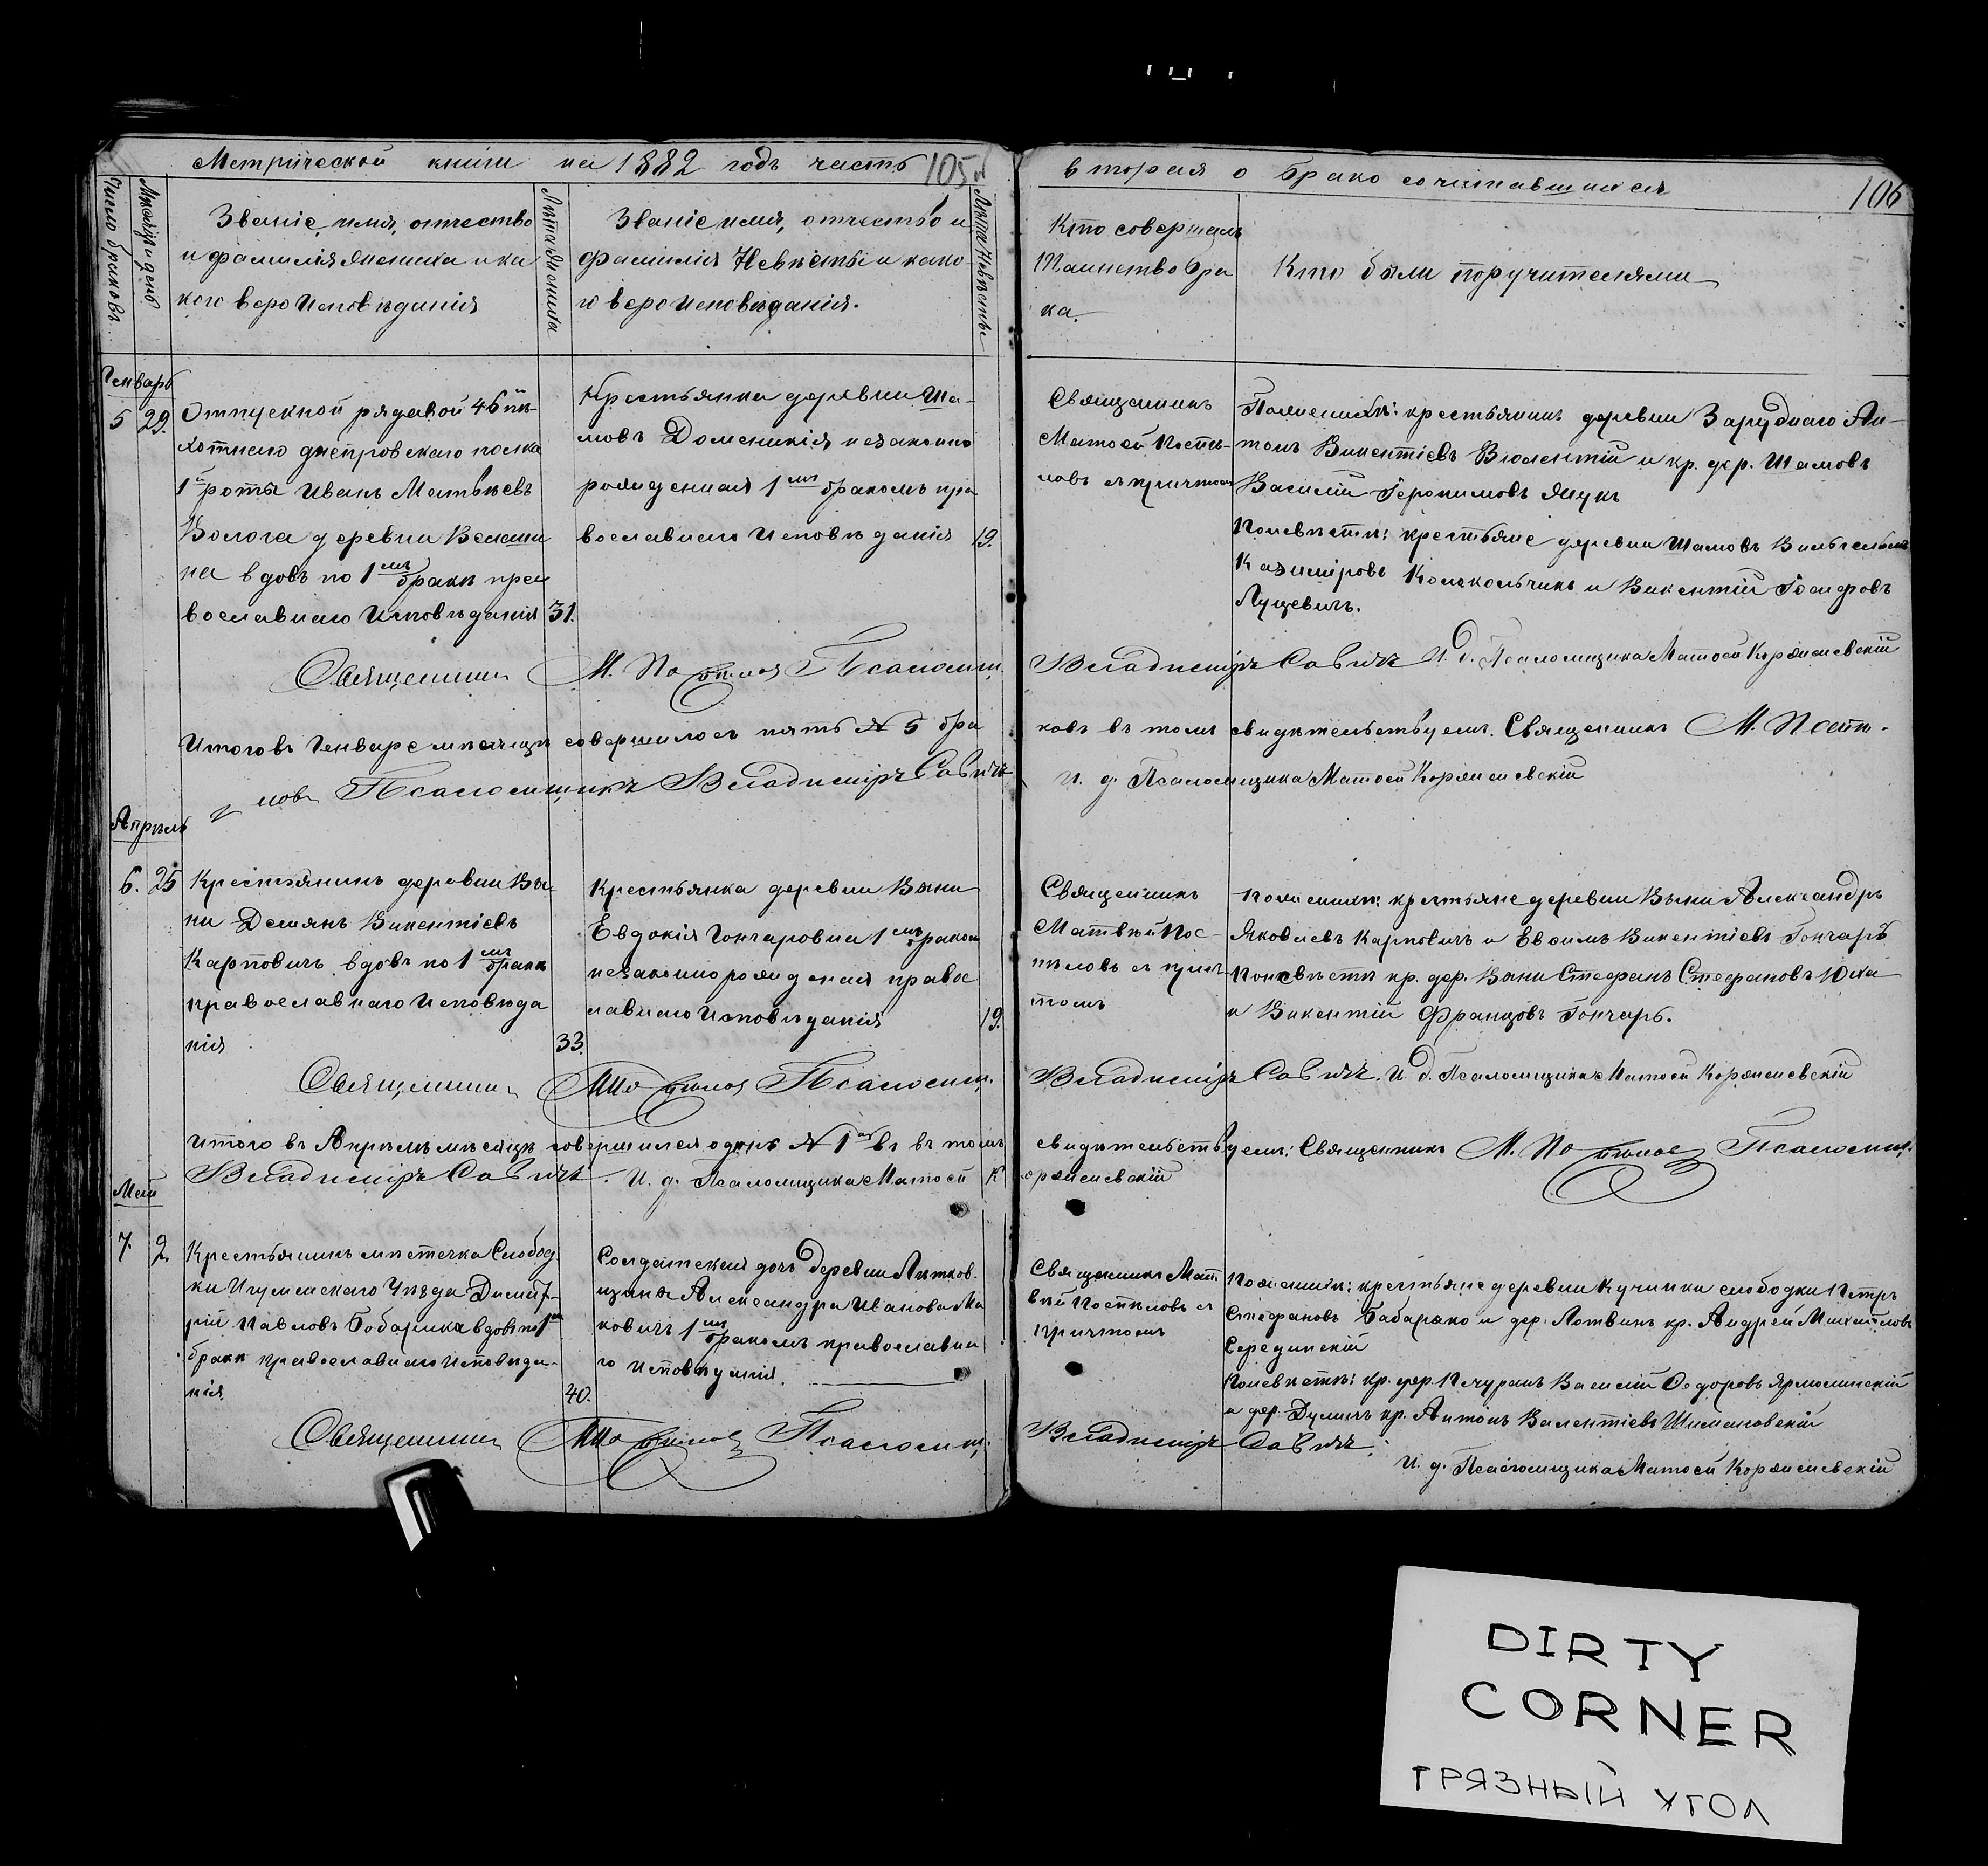 Метрической книги на 1882 годъ часть 105
вторая о бракосочитавшихся 106
Число браковъ
Месяцъ и день
Званіе, имя, отчество
и фамилія Жениха и ка
кого вероисповѣданія
Лѣта Жениха
Званіе имя, отчество и
фамилія Невѣсты и како
го вероисповѣданія.
Лѣта Невѣсты
Кто совершалъ
Таинство бра
ка.
Кто были поручителями
Генварь
5 29.
Отпускной рядовой 46 пѣ-
хотнаго днепровскаго полка
1й роты Иванъ Матвѣевъ
Волога деревни
на вдовъ по 1мъ бракѣ пра
вославнаго Исповѣданія 31.
Крестьянка деревни Ша-
мовъ Доменикія незаконно
рожденная 1мъ бракомъ пра
вославнаго Исповѣданія 19.
Священникъ
Матѳей Постѣ-
ловъ съ причтомъ
По женихѣ: крестьянинъ деревни Заруднаго Ан-
тонъ Викентіевъ и кр. дер. Шамовъ
Василій Іеронимовъ Янукъ
По невѣстѣ: крестьяне деревни Шамовъ
Казиміровъ Колокольчикъ и Викентій Іосифовъ
Луцевичъ.
Священникъ М. Псаломщ.
Владиміръ Савичъ И. д. Псаломщика Матѳей Корженевскій
Итого въ Генваре месяцѣ совершилось пять № 5 бра
ковъ въ томъ свидѣтельствуемъ. Священникъ М. Постѣ-
ловъ Псаломщикъ Владиміръ Савичъ
И. д. Псаломщика Матѳей Корженевскій
Апрѣль
6. 25
Крестьянинъ деревни Вы-
ни Демянъ Викентіевъ
Карповичъ вдовъ по 1мъ бракѣ
православнаго Исповѣда
нія 33.
Крестьянка деревни Выни
Евдокія Гончаровна 1мъ бракомъ
незаконнорожденая правос
лавнаго Исповѣданія 19.
Священникъ
Матвѣй Пос-
тѣловъ съ прич-
томъ
По женихѣ: крестьяне деревни Выни Александръ
Яковлевъ Карповичъ и Евѳимъ Викентіевъ Гончаръ
По невѣстѣ кр. дер. Выни Стефанъ Стефановъ Юха
и Викентій Францовъ Гончаръ.
Священникъ Псаломщ.
Владиміръ Савичъ. И. д. Псаломщика Матѳей Корженевскій
Итого въ Апрѣлѣ мѣсяцѣ совершился одинъ № 1 въ томъ
свидѣтельствуемъ: Священникъ М. Псаломщ.
Владиміръ Савичъ. И. д. Псаломщика Матѳей К
орженевскій
Май
7. 2
Крестьянинъ местечка Слобод
ки Игуменскаго Уѣзда Дими-
рій Павловъ Бобарика вдовъ по 1мъ
бракѣ православнаго Исповѣда-
нія 40.
Солдатская дочь деревни Литков-
щина Александра Иванова Ма
ковичъ 1мъ бракомъ православна
го Исповѣданія.
Священникъ Мат
вѣй Постѣловъ съ
причтомъ
По женихѣ: крестьяне деревни Кучинки слободки Петръ
Стефановъ Бабарыко и дер. Лотвинъ кр. Андрей Михайловъ
Серединскій
По невѣстѣ: кр. дер. Печуранъ Василій Ѳедоровъ Ярмолинскій
и дер. Дуличъ кр. Антонъ Валентіевъ Шимановскій
Священникъ Псаломщ.
Владиміръ Савичъ.
И. д. Псаломщика Матѳей Корженевскій
DIRTY
CORNER
ГРЯЗНЫЙ УГОЛ